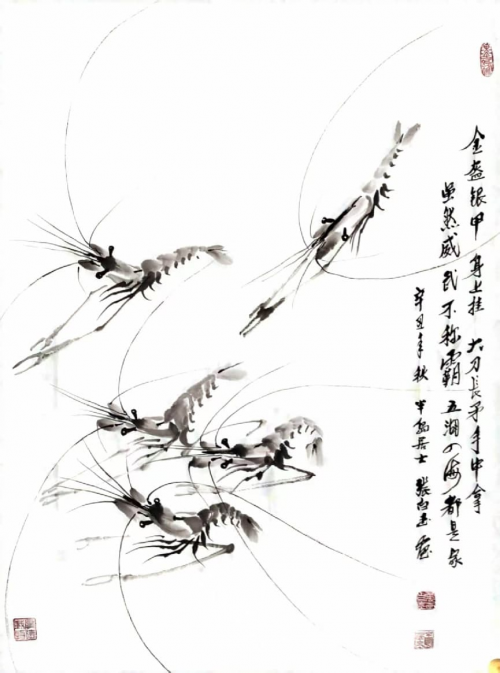 金盔银甲身上挂 大刀長矛手中拿
虽然威武不称霸 五湖四海都是家
辛丑年秋 居士 張